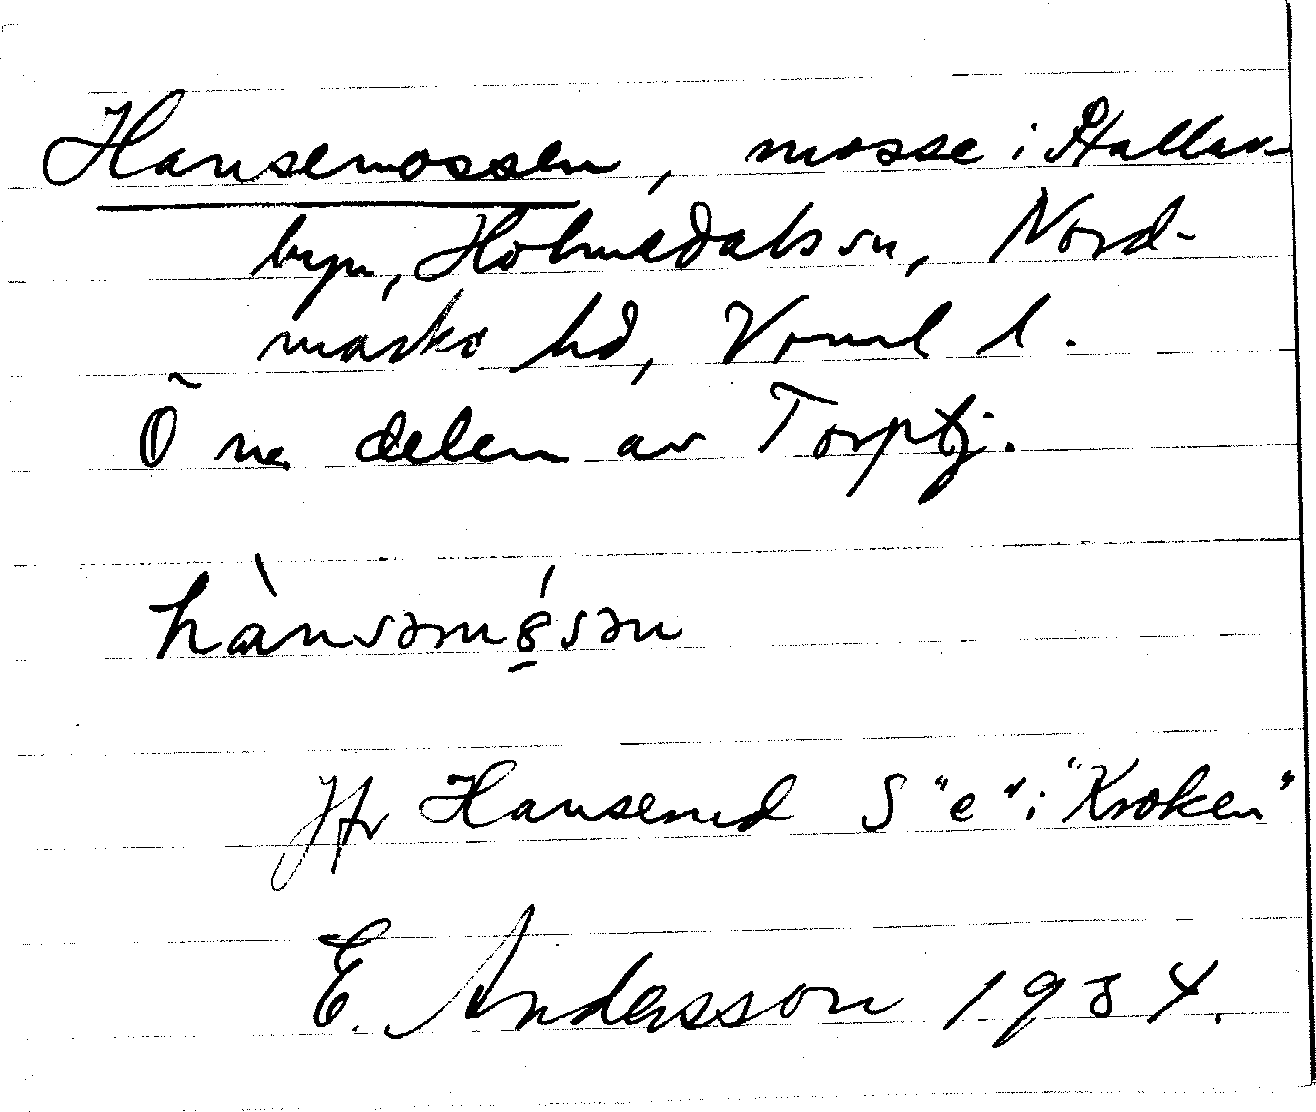 Hansemossen, mosse i Hallan-
byn, Holmedals sn, Nord-
marks hd, Vrml l.
Ö ra delen av Torptj.
hànsəmǿsən
Jfr Hanserud S "e" i "Kroken"
E. Andersson 1984.